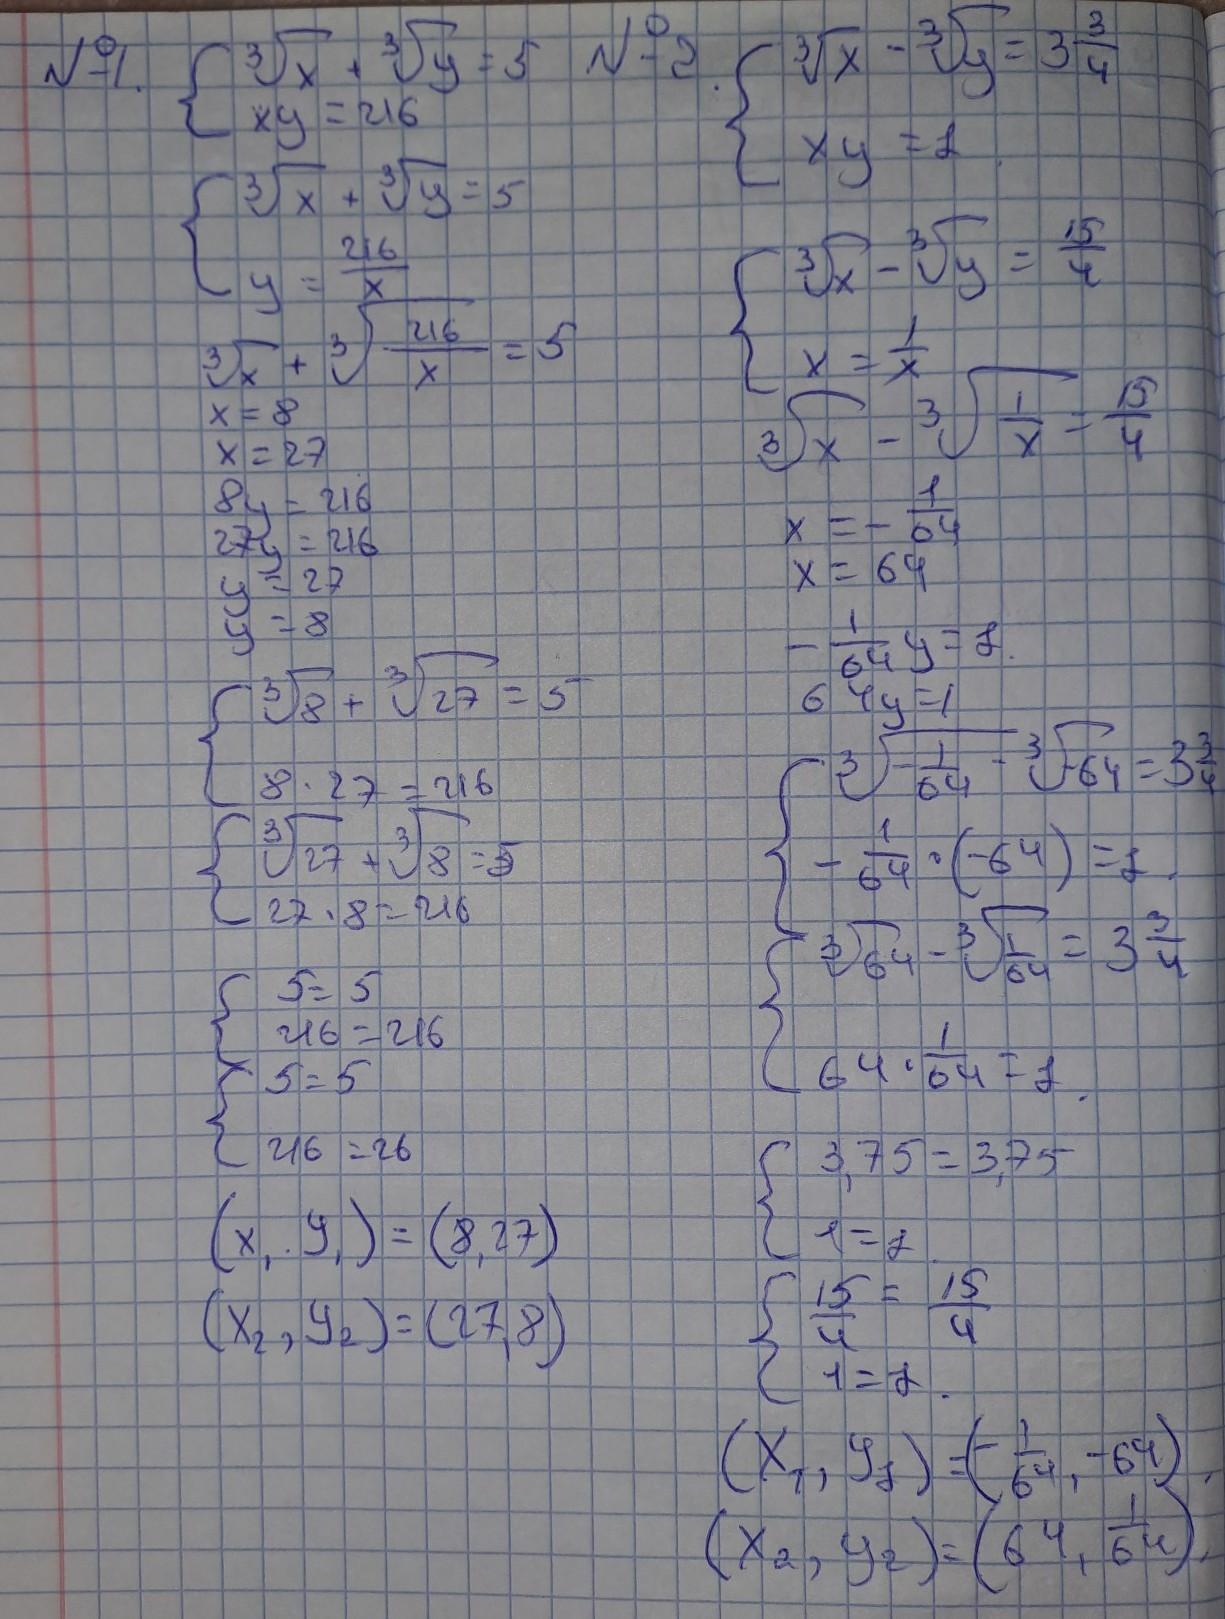 №1. { ∛x + ∛y = 5
xy = 216
{ ∛x + ∛y = 5
y = 216/x
∛x + ∛(216/x) = 5
x = 8
x = 27
8y = 216
27y = 216
y = 27
y = 8
{ ∛8 + ∛27 = 5
8 · 27 = 216
{ ∛27 + ∛8 = 5
27 · 8 = 216
{ 5 = 5
216 = 216
{ 5 = 5
216 = 26
(x₁, y₁) = (8,27)
(x₂, y₂) = (27,8)
№2. { ∛x - ∛y = 3 3/4
xy = 1
{ ∛x - ∛y = 15/4
x = 1/x
∛x - ∛(1/x) = 15/4
x = - 1/64
x = 64
- 1/64 y = 1.
64y = 1
{ ∛(-1/64) - ∛-64 = 3 3/4
- 1/64 · (-64) = 1.
{ ∛64 - ∛(1/64) = 3 3/4
64 · 1/64 = 1.
{ 3,75 = 3,75
1 = 1.
{ 15/4 = 15/4
1 = 1.
(x₁, y₁) = (- 1/64, -64).
(x₂, y₂) = (64, 1/64).